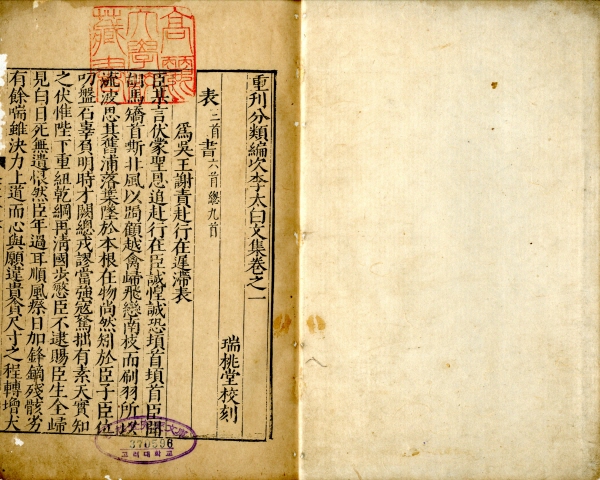 重刊分類編次李太白文集卷之一
瑞桃堂校刻
表三首 書六首 總九首
為吳王謝責赴行在遲滯表
臣某言伏蒙聖恩追赴行在臣誠惶誠恐頓首頓首臣聞
胡馬矯首嘶北風以跼顧越禽歸飛戀南枝而刷羽所以
流波思其舊浦落葉墜於本根在物尚然矧於臣子臣位
叨盤石辜負明時才闕總戎謬當強寇駑拙有素天實知
之伏惟陛下重紐乾綱再清國步愍臣不逮賜臣生全歸
見白日死無遺恨然臣年過耳順風祭日加鋒鏑殘骸劣
有餘喘雖決力上道而心與願違貴貪尺寸之程轉增犬
高麗大學校藏書
370596
고려대학교